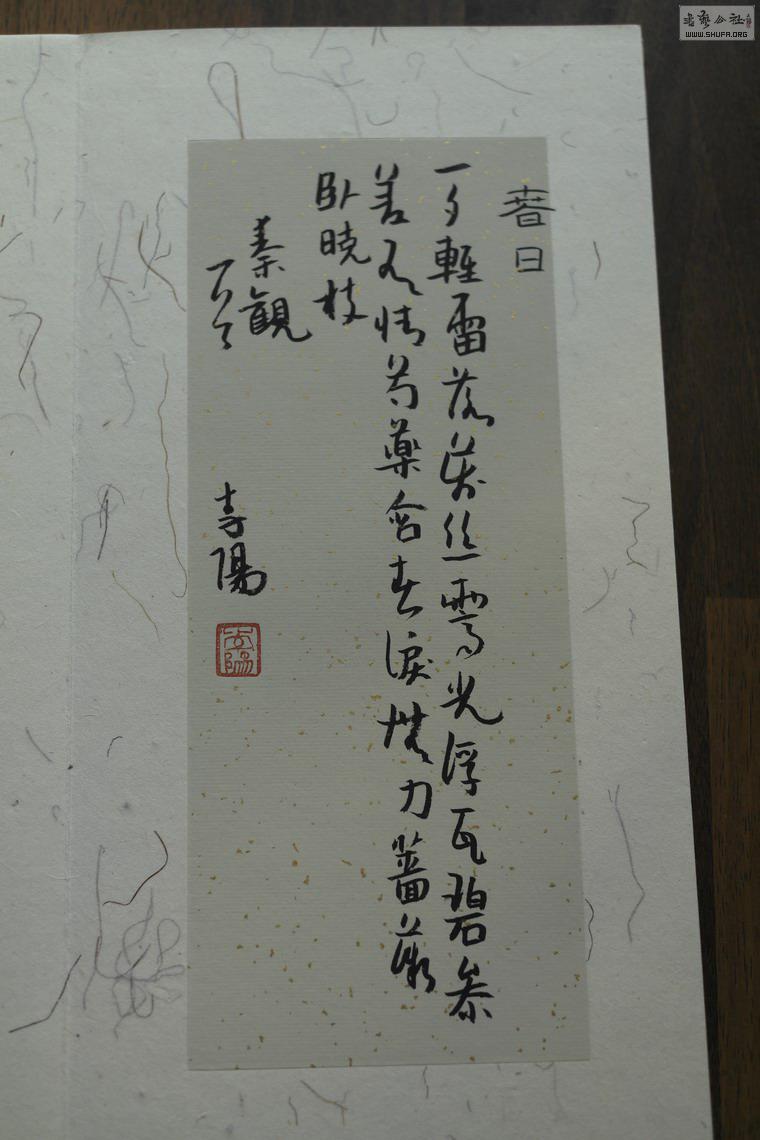 書藝公社
WWW.SHUFA.ORG
春日
一夕輕雷落萬丝霽光浮瓦碧参
差有情芍藥含春淚無力薔薇
卧暁枝
秦觀
陽